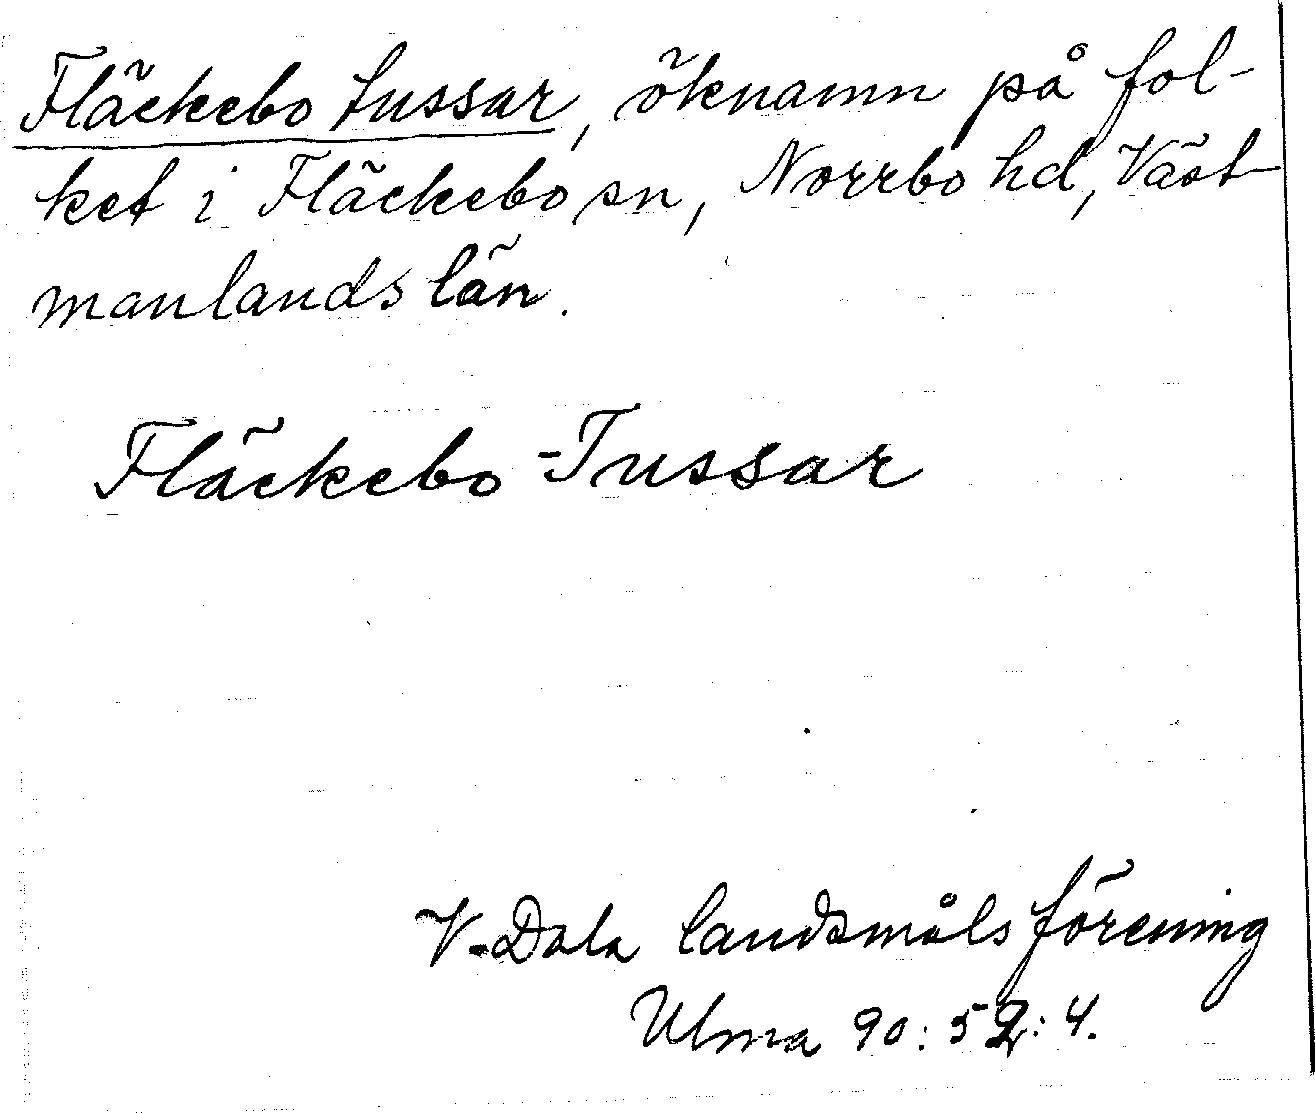 Fläckebo tussar, öknamn på fol-
ket i Fläckebo sn, Norrbo hd, Väst-
manlands län.
Fläckebo-Tussar
V-Dala landsmålsförening
Ulma 90:52:4.